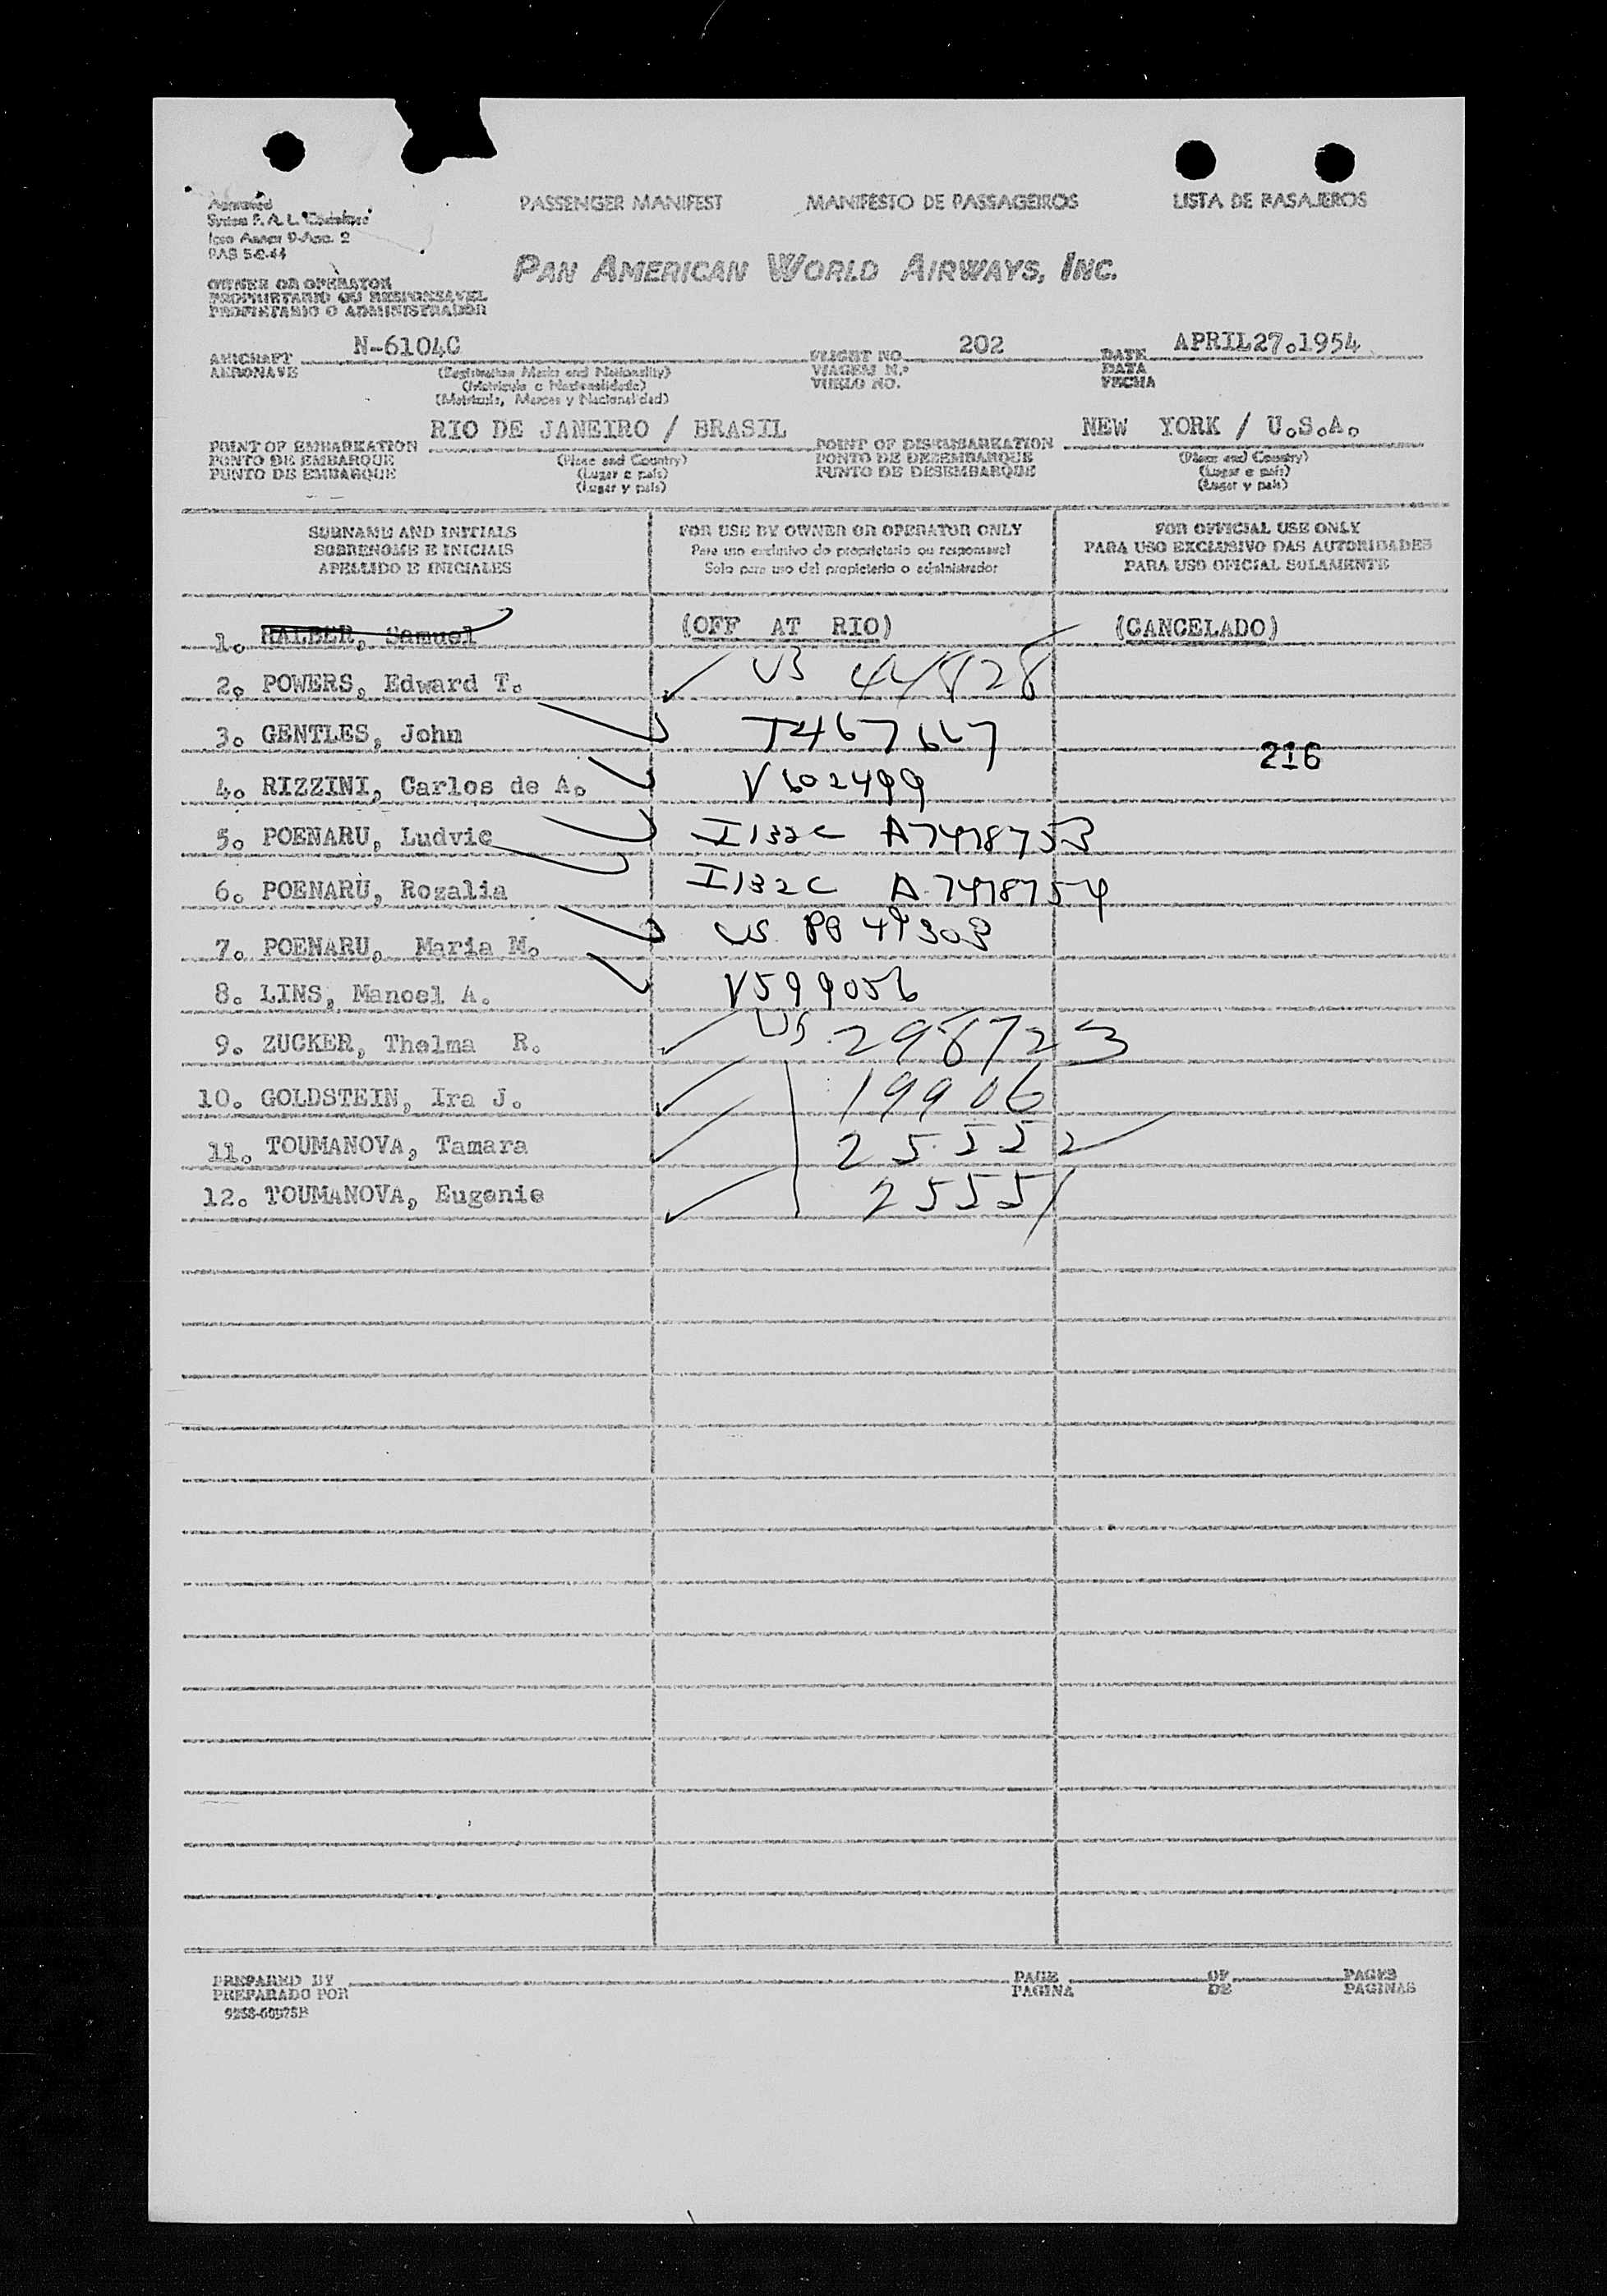 PASSENGER MANIFEST MANIFESTO DE PASSAGEIROS LISTA DE PASAJEROS
Annex 9-App. 2
PAN AMERICAN WORLD AIRWAYS, INC.
OWNER OR OPERATOR
PROPRIETARIO OU RESPONSAVEL
PROPIETARIO O ADMINISTRADOR
AIRCRAFT N-6104C FLIGHT NO. 202 DATE APRIL27.1954
AERONAVE (Registration Marks and Nationality) VIAGEM N.º DATA
(Matricula e Nacionalidade) VUELO NO. FECHA
(Matricula, Marcas y Nacionalidad)
POINT OF EMBARKATION RIO DE JANEIRO / BRASIL POINT OF DISEMBARKATION NEW YORK / U.S.A.
PONTO DE EMBARQUE (Place and Country) PONTO DE DESEMBARQUE (Place and Country)
PUNTO DE EMBARQUE (Lugar e pais) PUNTO DE DESEMBARQUE (Lugar e pais)
(Lugar y pais) (Lugar y pais)
SURNAME AND INITIALS FOR USE BY OWNER OR OPERATOR ONLY FOR OFFICIAL USE ONLY
SOBRENOME E INICIAIS Para uso exclusivo do proprietario ou responsavel PARA USO EXCLUSIVO DAS AUTORIDADES
APELLIDO E INICIALES Solo para uso del propietario o administrador PARA USO OFICIAL SOLAMENTE
1. Samuel (OFF AT RIO) (CANCELADO)
2. POWERS, Edward T. US 44828
3. GENTLES, John T467667
216
4. RIZZINI, Carlos de A. V602499
5. POENARU, Ludvic I132C A7498753
6. POENARU, Rozalia I132C A7498754
7. POENARU, Maria M. US PP 49303
8. LINS, Manoel A. V599056
9. ZUCKER, Thelma R. US 298723
10. GOLDSTEIN, Ira J. 19906
11. TOUMANOVA, Tamara 25552
12. TOUMANOVA, Eugenie 25551
PREPARED BY PAGE OF PAGES
PREPARADO POR PAGINA DE PAGINAS